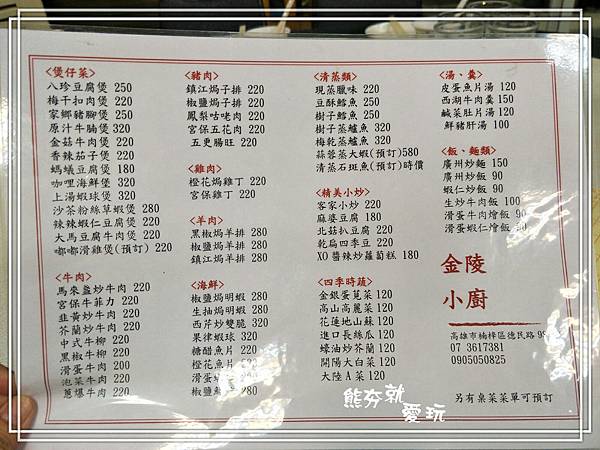 <煲仔菜>
八珍豆腐煲 250
梅干扣肉煲 220
家鄉豬腳煲 250
原汁牛腩煲 320
金菇牛肉煲 220
香辣茄子煲 220
螞蟻豆腐煲 180
咖哩海鮮堡 320
上湯蝦球煲 320
沙茶粉絲草蝦煲 280
辣辣蝦仁豆腐煲 220
大馬豆腐牛肉煲 220
嘟嘟滑雞煲(預訂) 220
<牛肉>
馬來盞炒牛肉 220
宮保牛菲力 220
韭黃炒牛肉 220
芥蘭炒牛肉 220
中式牛柳 220
黑椒牛柳 220
滑蛋牛肉 200
泡菜牛肉 220
蔥爆牛肉 220
<豬肉>
鎮江焗子排 220
椒鹽焗子排 220
鳳梨咕咾肉 220
宮保五花肉 220
五更腸旺 220
<雞肉>
橙花焗雞丁 220
宮保雞丁 220
<羊肉>
黑椒焗羊排 280
椒鹽焗羊排 280
鎮江焗羊排 280
<海鮮>
椒鹽焗明蝦 280
生抽焗明蝦 280
西芹炒雙脆 320
果律蝦球 320
糖醋魚片 220
橙花魚片
滑蛋蝦
椒鹽
<清蒸類>
現蒸臘味 220
豆酥鱈魚 250
樹子鱈魚 250
樹子蒸鱸魚 320
梅乾蒸鱸魚 320
蒜蓉蒸大蝦(預訂)580
清蒸石斑魚(預訂)時價
<精美小炒>
客家小炒 220
麻婆豆腐 180
北菇扒豆腐 220
乾扁四季豆 220
XO醬辣炒蘿蔔糕 180
<四季時蔬>
金銀蛋莧菜 120
高山高麗菜 120
花蓮地山蘇 120
進口長絲瓜 120
蠔油炒芥蘭 120
開陽大白菜 120
大陸A菜 120
<湯、羹>
皮蛋魚片湯 120
西湖牛肉羹 150
鹹菜肚片湯 120
鮮豬肝湯 100
<飯、麵類>
廣州炒麵 150
廣州炒飯 90
蝦仁炒飯 90
生炒牛肉飯 100
滑蛋牛肉燴飯 90
滑蛋蝦仁燴飯 90
金陵
小廚
高雄市楠梓區德民路
07 3617381
0905050825
另有桌菜菜單可預訂
熊夯就
愛玩